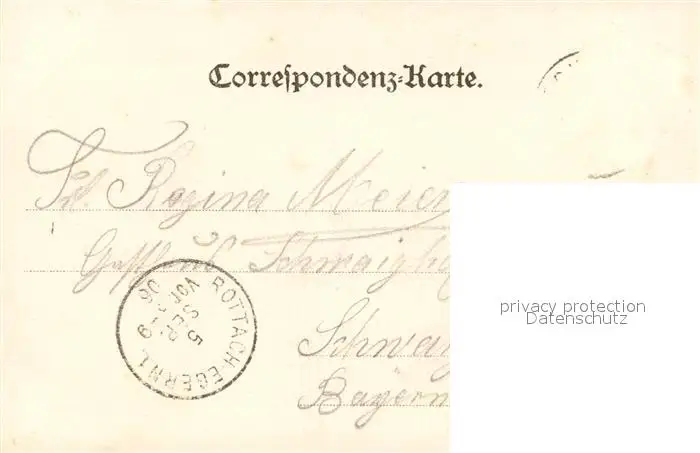 Correspondenz-Karte.
Frl. Regina Meier
Schwaig
Bayern
ROTTACH-EGERN 1.
5
SEP.
VOR
privacy protection
Datenschutz